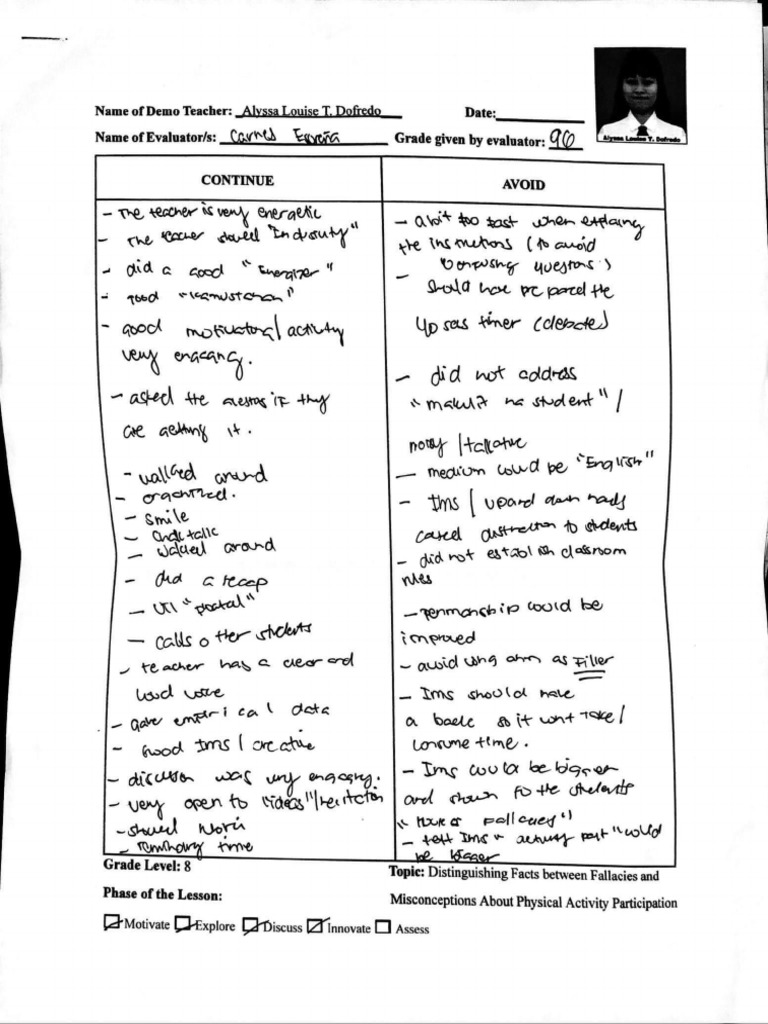 Name of Demo Teacher: Alyssa Louise T. Dofredo Date:
Name of Evaluator/s: Grade given by evaluator: 96
Alyssa Louise T. Dofredo
CONTINUE
- The teacher is very energetic
- The teacher showed
- did a good "Energizer"
- good "kamustahan"
- good motivation/activity
very engaging.
- asked the if they
are getting it.
- walked around
- organized.
- smile
-
- walked around
- did a recap
- "portal"
- calls other students
- teacher has a clear and
loud voice
- gave empirical data
- Good IMs/creative
- discussion was very engaging.
- very open to "ideas"/recitation
- showed
- reminding time
AVOID
- a bit too fast when explaing
the instructions (to avoid
confusing questions)
- should have prepared the
40 secs timer (debate)
- did not address
"makulit na student"/
noisy/talkative
- medium could be "English"
- IMs/ down
distraction to students
- did not establish classroom
rules
- penmanship could be
improved
- avoid using as Filler
- IMs should have
a back so it wont take/
consume time.
- IMs could be bigger
and shown to the students
fallacies")
- IMs activity part" could
be bigger
Grade Level: 8
Topic: Distinguishing Facts between Fallacies and
Misconceptions About Physical Activity Participation
Phase of the Lesson:
Motivate Explore Discuss Innovate Assess